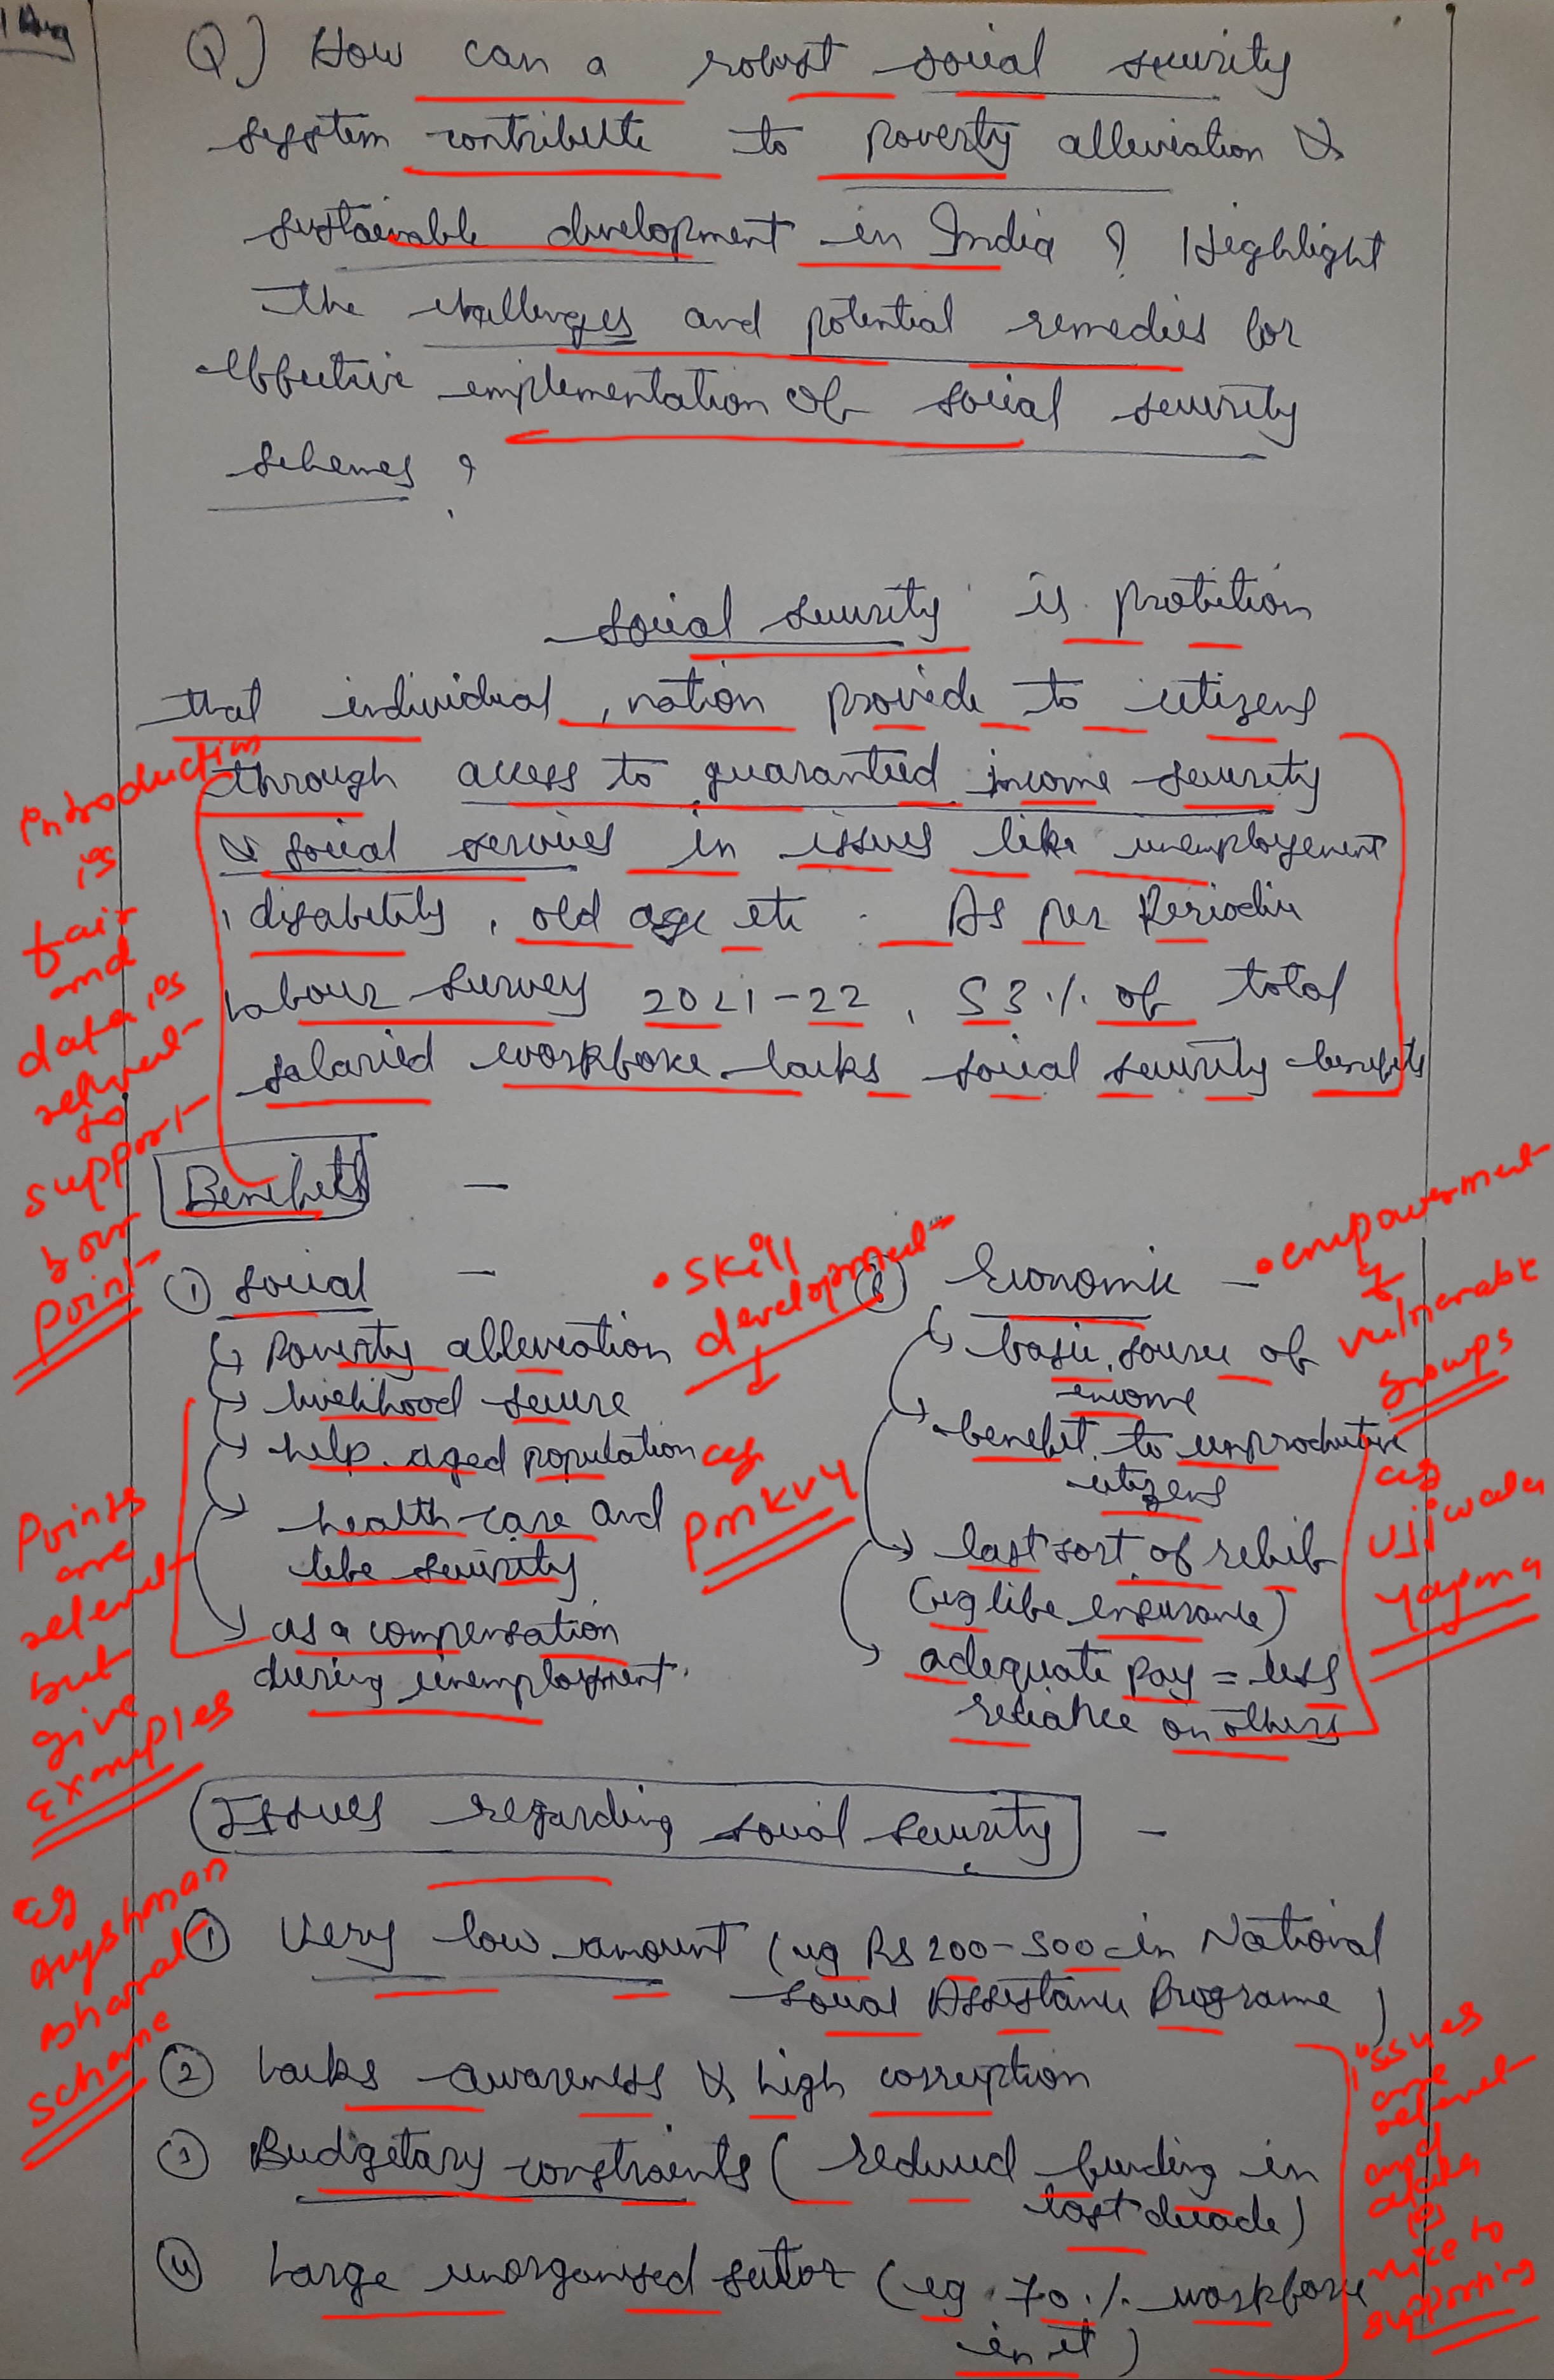 1 Aug
Q) How can a robust social security
system contribute to poverty alleviation &
sustainable development in India ? Highlight
the challenges and potential remedies for
effective implementation of social security
schemes ?
social security is protection
that individual, nation provide to citizens
through access to guaranteed income security
& social services in issues like unemployement
, disability, old age etc . As per Periodic
Labour Survey 2021-22, 53% of total
salaried workforce lacks social security benefits
introduction
is
fair
and
data is
relevent
to
support
your
point
Benefits -
① social -
Poverty alleviation
livelihood secure
help aged population
health care and
life security
as a compensation
during unemployment.
• Skill
development
eg
PMKVY
② Economic -
basic source of
income
benefit to unproductive
citizens
last sort of relief
(eg life insurance)
adequate pay = less
reliance on others
• empowerment
of
vulnerable
groups
eg
Ujjwala
Yojona
Points
are
relevent
but
give
Examples
eg
Ayushman
Bharrat
scheme
Issues regarding social security -
① Very low amount (eg Rs 200-500 in National
Social Assistance Programe )
② Lacks awareness & high corruption
③ Budgetary constraints ( reduced funding in
last decade)
④ Large unorganised sector (eg 70% workforce
in it )
issues
are
relevent
and
data
is
nice to
supporting